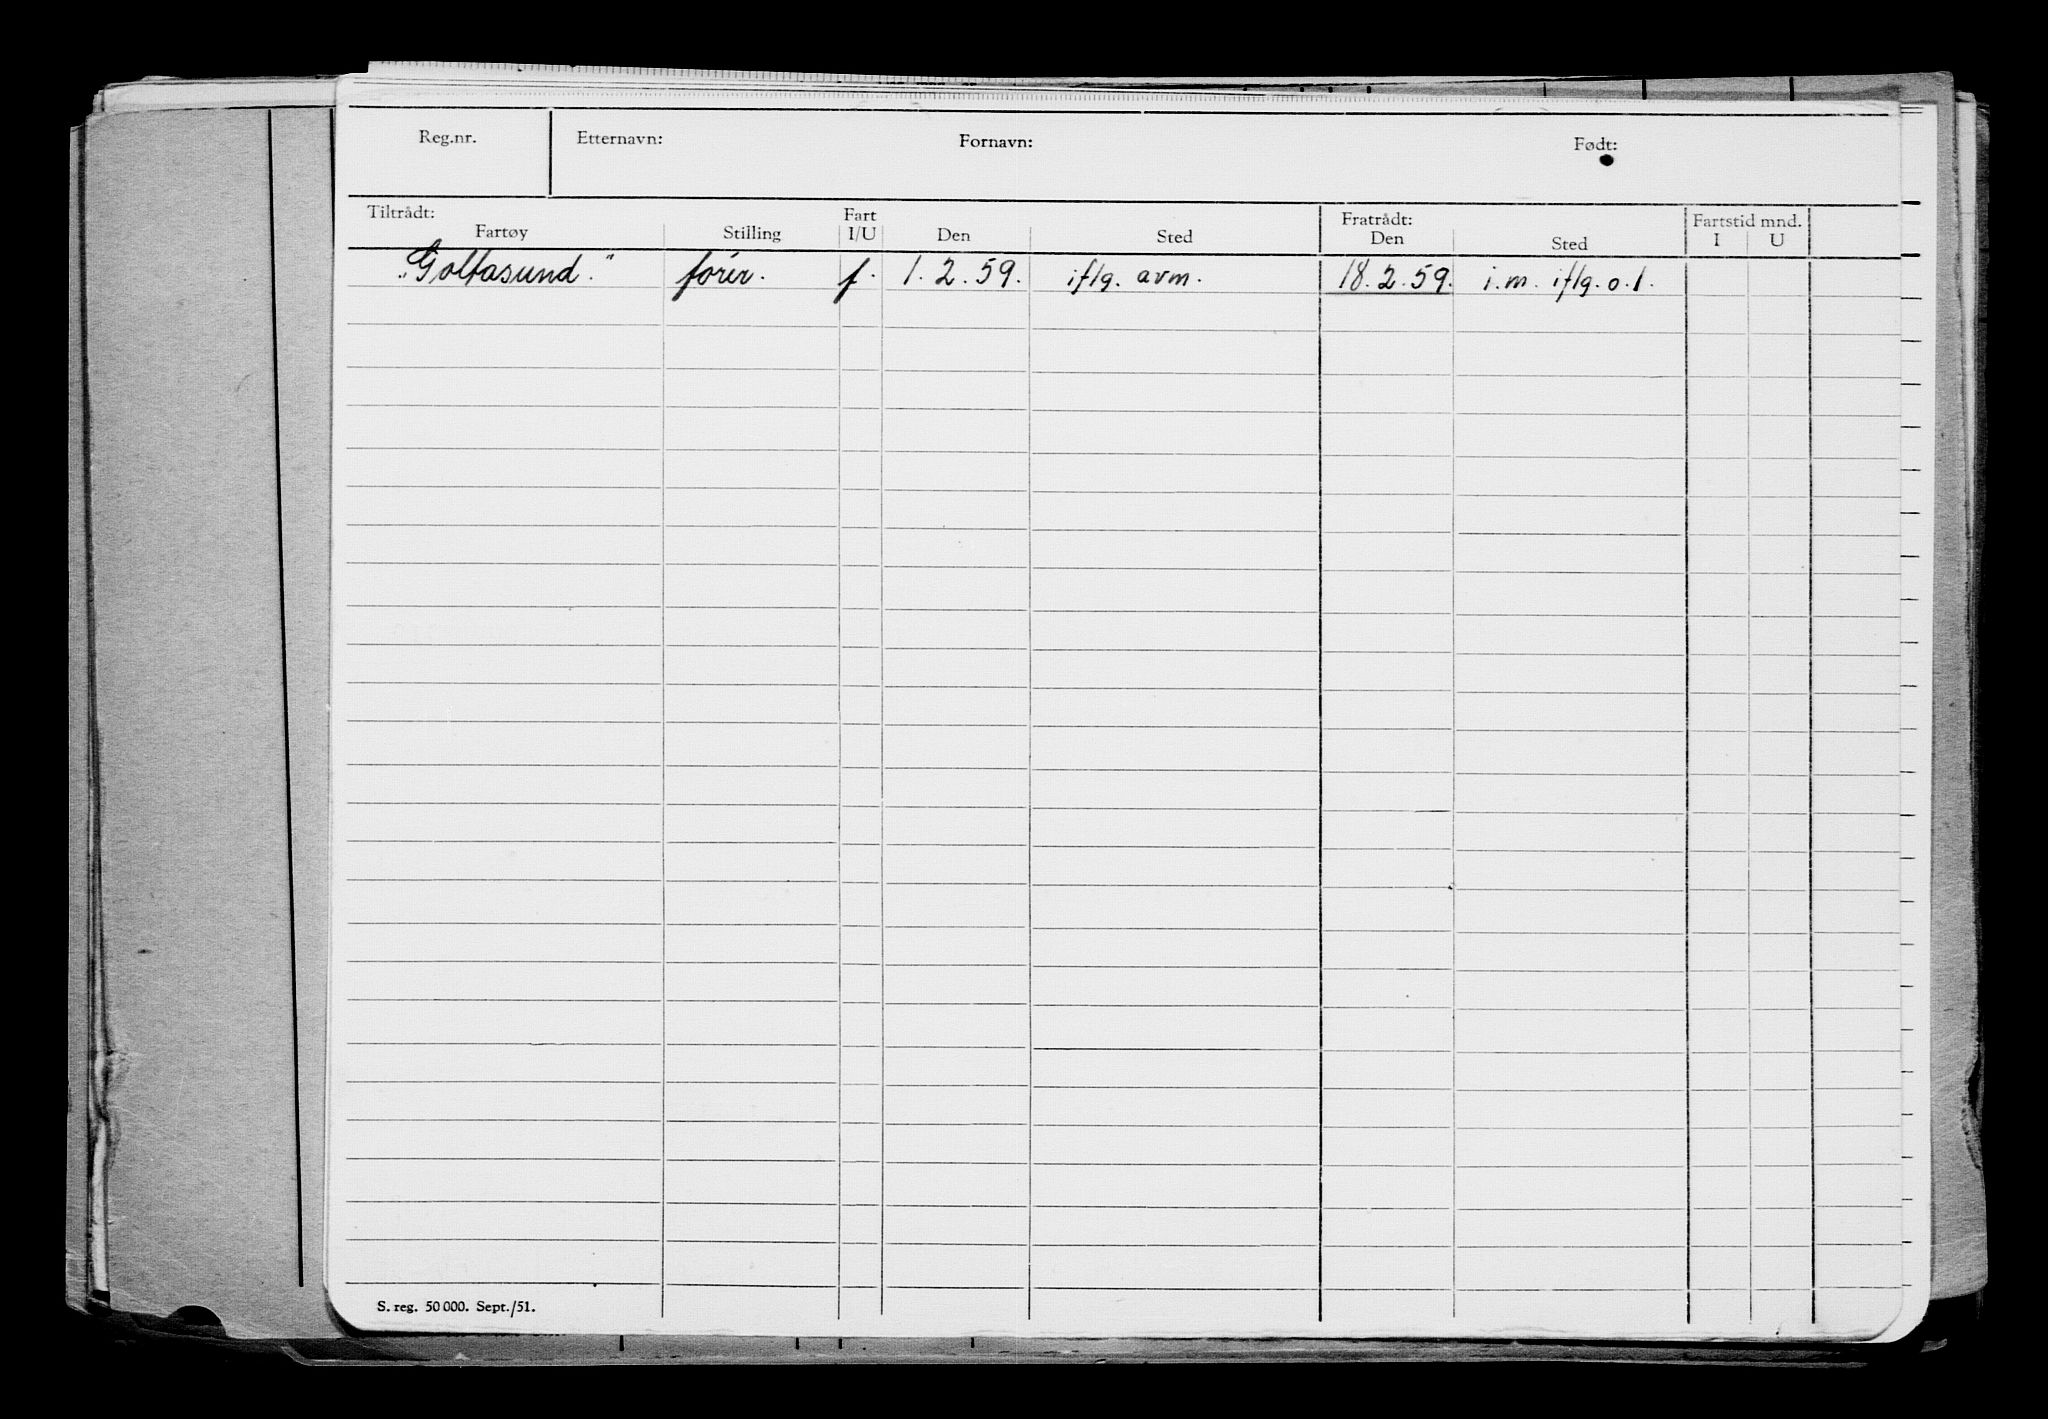 Reg.nr. Etternavn: Fornavn: Født:
Tiltrådt: Fartøy Stilling Fart I/U Den Sted Fratrådt: Den Sted Fartstid mnd. I U
„Golfasund." fører. f. 1.2.59. iflg. avm. 18.2.59. i.m. iflg. o.l.
S. reg. 50 000. Sept./51.